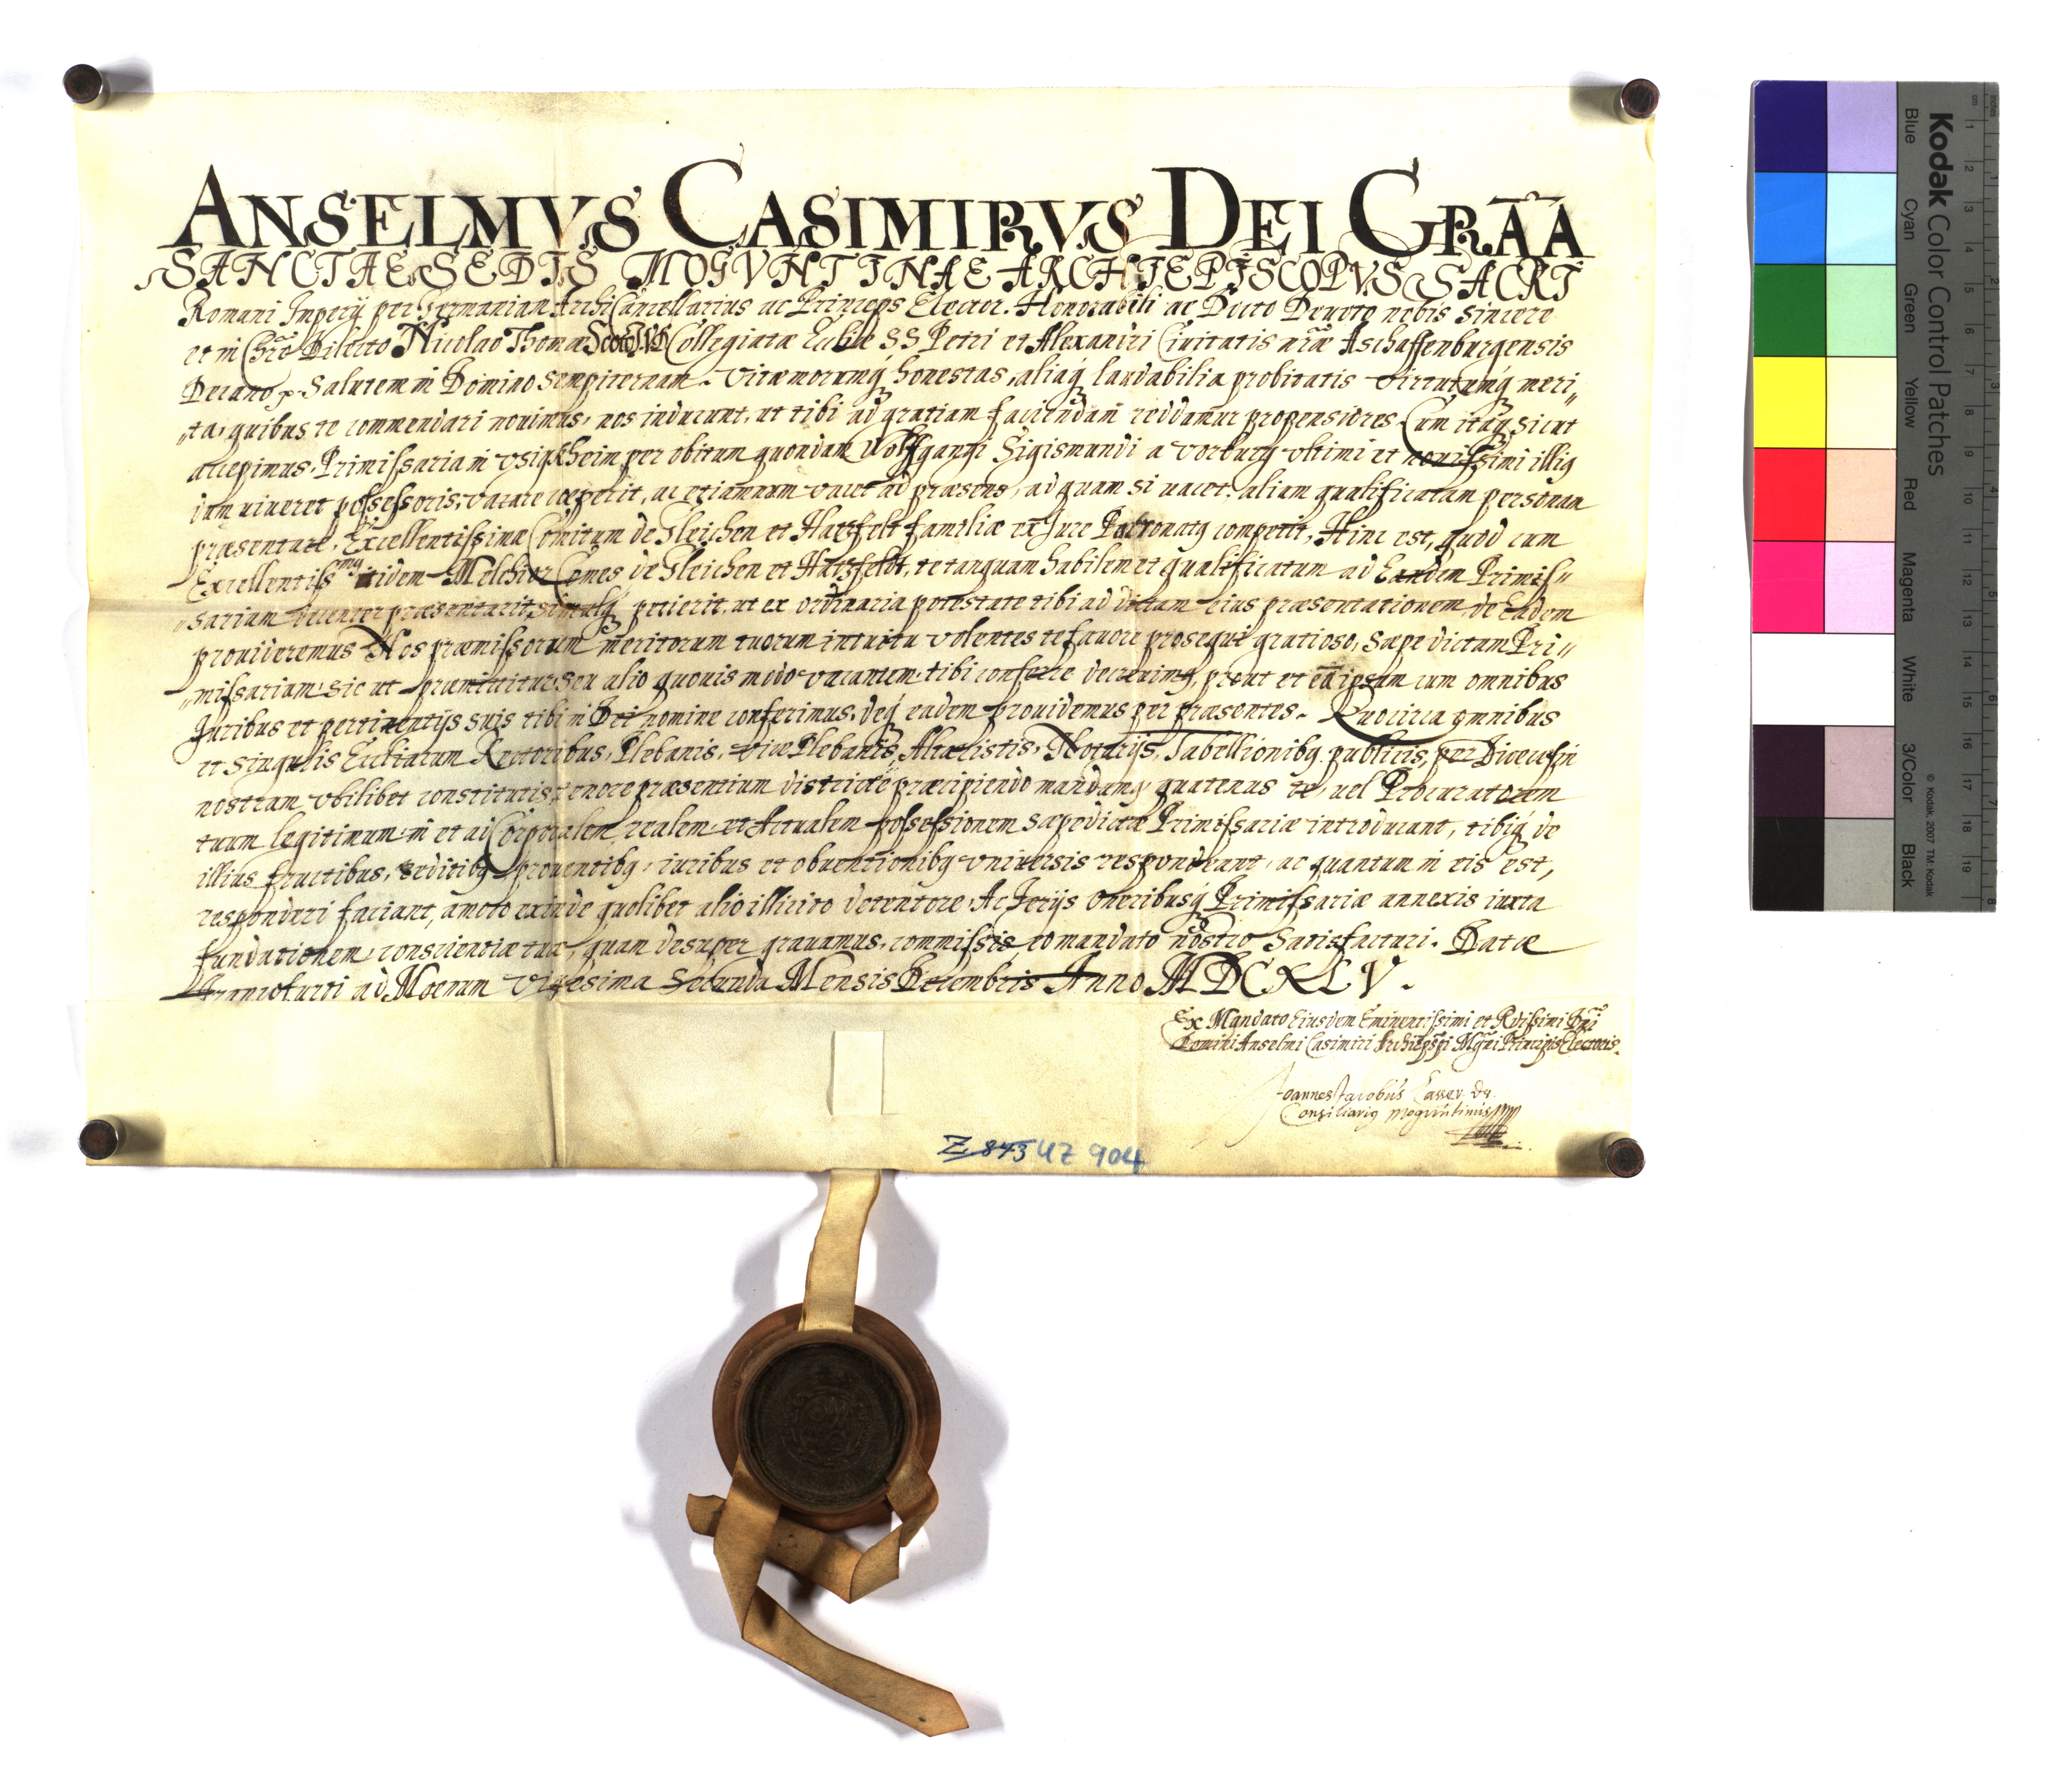 ANSELMVS CASIMIRVS DEI GRÃA
SANCTAE SEDIS MOGVNTINAE ARCHIEPISCOPVS SACRI
Romani Imperij per Germaniam ArchiCancellarius ac Princeps Elector. Honorabili ac Docto Deuoto nobis sincere
et in Chrõ Dilecto Nicolao Thomæ Scoto Collegiatæ Eccliæ SS Petri et Alexandri Ciuitatis nr̃æ Aschaffenburgensis
Decano Salutem in Domino sempiternam. Vitæ morumq́ honestas, aliaq́ laudabilia probitatis virtutumq́ meri„
„ta, quibus te commendari nouimus, nos inducunt, ut tibi ad gratiam faciendam reddamur propensiores. Cum itaq́ sicut
accepimus, Primissaria in Vsigkheim per obitum quondam Wolffgangi Sigismundi a Vorburg vltimi et nouissimi illiq
dum uiueret possessoris, vacare cœperit, ac etiamnum vacet ad præsens, ad quam si uacet, aliam qualificatam personam
præsentare, Excellentissimæ Comitum de Gleichen et Hatzfelt familiæ ex Jure Patronatq competit, Hinc est, quod cum
Excellentissmq itidem Melchior Comes de Gleichen et Hatzfeldt, te tanquam habilem et qualificatum ad Eandem Primis„
„sariam decenter præsentarit, simulq́ petierit, ut ex ordinaria potestate tibi ad dictam eius præsentationem, de Eadem
prouideremus Nos præmissorum meritorum tuorum intuitu volentes te fauore prosequi gratioso, sæpe dictam Pri„
„missariam, sic ut præmittitur, seu alio quouis modo vacantem, tibi conferre decreuimq, prout et eã ipsam cum omnibus
Juribus et pertinentijs suis tibi in Dei nomine conferimus, deq́ eadem prouidemus per præsentes. Quocirca omnibus
et singulis Eccliarum Rectoribus, Plebanis, vice Plebanis, Altaristis, Notarijs, Tabellionibq publicis, per Diœcesin
nostram vbilibet constitutis, tenore præsentium districtè præcipiendo mandamq, quatenus te, uel Procuratorem
tuum legitimum, in et ad Corporalem, realem, et Actualem possessionem sæpedictæ Primissariæ introducant, tibiq́ de
illius fructibus, redditibq prouentibq, iuribus et obuentionibq vniuersis respondeant, ac quantum in eis est,
responderi faciant, amoto exinde quolibet alio illicito detentore, Ac Jerijs Oneribusq́ Primissariæ annexis iuxta
fundationem, conscientiæ tuæ, quam desuper grauamus, commissis, eo mandato nostro satisfacturi. Datæ
Francofurti ad Moenum Vigesima Secunda Mensis Decembris Anno MDCXLV.
Ex Mandato Eiusdem Eminentissimi et Rdissimi Dñi
Domini Anselmi Casimiri Archiepspi Mgũni Principis Electoris.
Joannes Jacobus
Consiliariq Moguntinus
Z 843 UZ 904
Kodak Color Control Patches
Blue Cyan Green Yellow Red Magenta White 3/Color Black
© Kodak, 2007 TM: Kodak
inches 1 2 3 4 5 6 7 8
cm 1 2 3 4 5 6 7 8 9 10 11 12 13 14 15 16 17 18 19